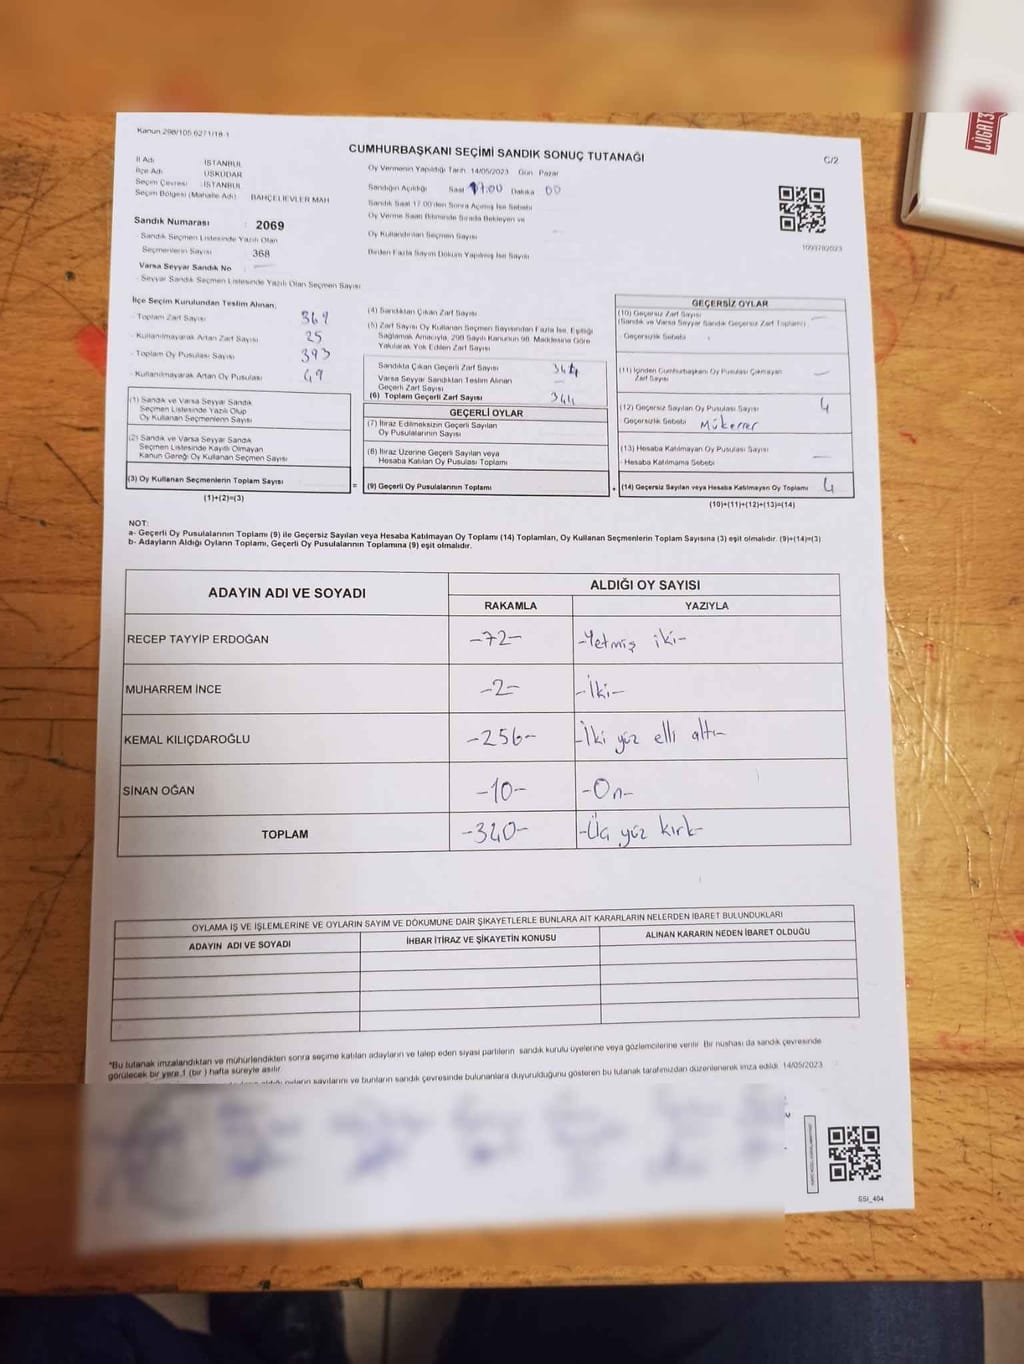 LÜGAT3
Kanun 298/105 6271/18-1
CUMHURBAŞKANI SEÇİMİ SANDIK SONUÇ TUTANAĞI
C/2
İl Adı : İSTANBUL
İlçe Adı : ÜSKÜDAR
Seçim Çevresi : İSTANBUL
Seçim Bölgesi (Mahalle Adı) : BAHÇELİEVLER MAH
Sandık Numarası : 2069
- Sandık Seçmen Listesinde Yazılı Olan
Seçmenlerin Sayısı 368
Varsa Seyyar Sandık No :
- Seyyar Sandık Seçmen Listesinde Yazılı Olan Seçmen Sayısı
Oy Vermenin Yapıldığı Tarih 14/05/2023 Gün Pazar
Sandığın Açıldığı Saat 17:00 Dakika 00
Sandık Saat 17.00'den Sonra Açılmış İse Sebebi
Oy Verme Saati Bitiminde Sırada Bekleyen ve
Oy Kullandırılan Seçmen Sayısı
Birden Fazla Sayım Döküm Yapılmış İse Sayısı
1093782023
İlçe Seçim Kurulundan Teslim Alınan;
- Toplam Zarf Sayısı 369
- Kullanılmayarak Artan Zarf Sayısı 25
- Toplam Oy Pusulası Sayısı 393
- Kullanılmayarak Artan Oy Pusulası 49
(1) Sandık ve Varsa Seyyar Sandık
Seçmen Listesinde Yazılı Olup
Oy Kullanan Seçmenlerin Sayısı
(2) Sandık ve Varsa Seyyar Sandık
Seçmen Listesinde Kayıtlı Olmayan
Kanun Gereği Oy Kullanan Seçmen Sayısı
(3) Oy Kullanan Seçmenlerin Toplam Sayısı
(1)+(2)=(3)
(4) Sandıktan Çıkan Zarf Sayısı
(5) Zarf Sayısı Oy Kullanan Seçmen Sayısından Fazla İse, Eşitliği
Sağlamak Amacıyla, 298 Sayılı Kanunun 98. Maddesine Göre
Yakılarak Yok Edilen Zarf Sayısı
Sandıkta Çıkan Geçerli Zarf Sayısı 344
Varsa Seyyar Sandıktan Teslim Alınan
Geçerli Zarf Sayısı
(6) Toplam Geçerli Zarf Sayısı 344
GEÇERLİ OYLAR
(7) İtiraz Edilmeksizin Geçerli Sayılan
Oy Pusulalarının Sayısı
(8) İtiraz Üzerine Geçerli Sayılan veya
Hesaba Katılan Oy Pusulası Toplamı
= (9) Geçerli Oy Pusulalarının Toplamı +
GEÇERSİZ OYLAR
(10) Geçersiz Zarf Sayısı
(Sandık ve Varsa Seyyar Sandık Geçersiz Zarf Toplamı)
Geçersizlik Sebebi :
(11) İçinden Cumhurbaşkanı Oy Pusulası Çıkmayan
Zarf Sayısı
(12) Geçersiz Sayılan Oy Pusulası Sayısı 4
Geçersizlik Sebebi Mükerrer
(13) Hesaba Katılmayan Oy Pusulası Sayısı
- Hesaba Katılmama Sebebi
(14) Geçersiz Sayılan veya Hesaba Katılmayan Oy Toplamı 4
(10)+(11)+(12)+(13)=(14)
NOT:
a- Geçerli Oy Pusulalarının Toplamı (9) ile Geçersiz Sayılan veya Hesaba Katılmayan Oy Toplamı (14) Toplamları, Oy Kullanan Seçmenlerin Toplam Sayısına (3) eşit olmalıdır. (9)+(14)=(3)
b- Adayların Aldığı Oyların Toplamı, Geçerli Oy Pusulalarının Toplamına (9) eşit olmalıdır.
ADAYIN ADI VE SOYADI
ALDIĞI OY SAYISI
RAKAMLA YAZIYLA
RECEP TAYYİP ERDOĞAN -72- -Yetmiş iki-
MUHARREM İNCE -2- -İki-
KEMAL KILIÇDAROĞLU -256- -İki yüz elli altı-
SİNAN OĞAN -10- -On-
TOPLAM -340- -Üç yüz kırk-
OYLAMA İŞ VE İŞLEMLERİNE VE OYLARIN SAYIM VE DÖKÜMÜNE DAİR ŞİKAYETLERLE BUNLARA AİT KARARLARIN NELERDEN İBARET BULUNDUKLARI
ADAYIN ADI VE SOYADI İHBAR İTİRAZ VE ŞİKAYETİN KONUSU ALINAN KARARIN NEDEN İBARET OLDUĞU
*Bu tutanak imzalandıktan ve mühürlendikten sonra seçime katılan adayların ve talep eden siyasi partilerin sandık kurulu üyelerine veya gözlemcilerine verilir. Bir nüshası da sandık çevresinde
görülecek bir yere 1 (bir ) hafta süreyle asılır
oyların sayılarını ve bunların sandık çevresinde bulunanlara duyurulduğunu gösteren bu tutanak tarafımızdan düzenlenerek imza edildi. 14/05/2023
SSI_404